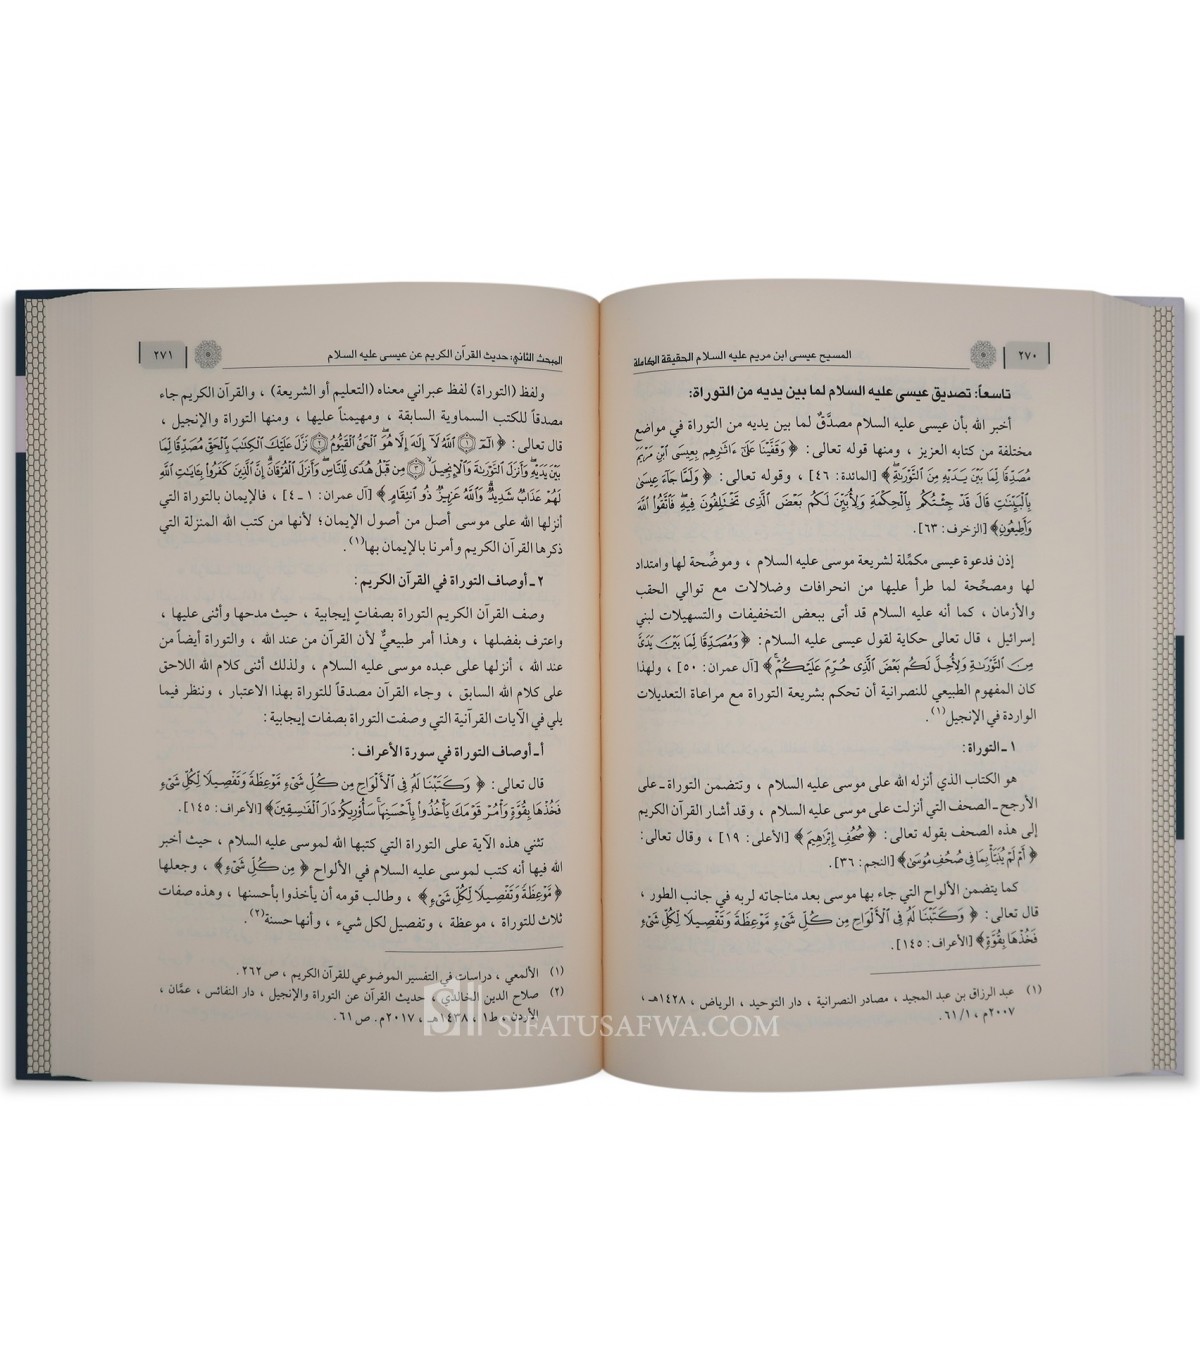 ٢٧٠
المسيح عيسى ابن مريم عليه السلام الحقيقة الكاملة
تاسعاً: تصديق عيسى عليه السلام لما بين يديه من التوراة:
أخبر الله بأن عيسى عليه السلام مصدَّقٌ لما بين يديه من التوراة في مواضع
مختلفة من كتابه العزيز ، ومنها قوله تعالى: ﴿ وَقَفَّيْنَا عَلَىٰٓ ءَاثَٰرِهِم بِعِيسَى ٱبْنِ مَرْيَمَ
مُصَدِّقًا لِّمَا بَيْنَ يَدَيْهِ مِنَ ٱلتَّوْرَىٰةِ﴾ [المائدة: ٤٦] ، وقوله تعالى: ﴿ وَلَمَّا جَآءَ عِيسَىٰ
بِٱلْبَيِّنَٰتِ قَالَ قَدْ جِئْتُكُم بِٱلْحِكْمَةِ وَلِأُبَيِّنَ لَكُم بَعْضَ ٱلَّذِى تَخْتَلِفُونَ فِيهِ فَٱتَّقُوا۟ ٱللَّهَ
وَأَطِيعُونِ﴾ [الزخرف: ٦٣].
إذن فدعوة عيسى مكمِّلة لشريعة موسى عليه السلام ، وموضِّحة لها وامتداد
لها ومصحِّحة لما طرأ عليها من انحرافات وضلالات مع توالي الحقب
والأزمان ، كما أنه عليه السلام قد أتى ببعض التخفيفات والتسهيلات لبني
إسرائيل ، قال تعالى حكاية لقول عيسى عليه السلام: ﴿ وَمُصَدِّقًا لِّمَا بَيْنَ يَدَىَّ
مِنَ ٱلتَّوْرَىٰةِ وَلِأُحِلَّ لَكُم بَعْضَ ٱلَّذِى حُرِّمَ عَلَيْكُمْ﴾ [آل عمران: ٥٠] ، ولهذا
كان المفهوم الطبيعي للنصرانية أن تحكم بشريعة التوراة مع مراعاة التعديلات
الواردة في الإنجيل(١).
١ ـ التوراة:
هو الكتاب الذي أنزله الله على موسى عليه السلام ، وتتضمن التوراة ـ على
الأرجح ـ الصحف التي أنزلت على موسى عليه السلام ، وقد أشار القرآن الكريم
إلى هذه الصحف بقوله تعالى: ﴿ صُحُفِ إِبْرَٰهِيمَ﴾ [الأعلى: ١٩] ، وقال تعالى:
﴿ أَمْ لَمْ يُنَبَّأْ بِمَا فِى صُحُفِ مُوسَىٰ﴾ [النجم: ٣٦].
كما يتضمن الألواح التي جاء بها موسى بعد مناجاته لربه في جانب الطور ،
قال تعالى: ﴿ وَكَتَبْنَا لَهُۥ فِى ٱلْأَلْوَاحِ مِن كُلِّ شَىْءٍ مَّوْعِظَةً وَتَفْصِيلًا لِّكُلِّ شَىْءٍ
فَخُذْهَا بِقُوَّةٍ﴾ [الأعراف: ١٤٥].
(١) عبد الرزاق بن عبد المجيد ، مصادر النصرانية ، دار التوحيد ، الرياض ، ١٤٢٨هـ ،
٢٠٠٧م ، ٦١/١ .
المبحث الثاني: حديث القرآن الكريم عن عيسى عليه السلام
٢٧١
ولفظ (التوراة) لفظ عبراني معناه (التعليم أو الشريعة) ، والقرآن الكريم جاء
مصدقاً للكتب السماوية السابقة ، ومهيمناً عليها ، ومنها التوراة والإنجيل ،
قال تعالى: ﴿ الٓمٓ ١ ٱللَّهُ لَآ إِلَٰهَ إِلَّا هُوَ ٱلْحَىُّ ٱلْقَيُّومُ ٢ نَزَّلَ عَلَيْكَ ٱلْكِتَٰبَ بِٱلْحَقِّ مُصَدِّقًا لِّمَا
بَيْنَ يَدَيْهِ وَأَنزَلَ ٱلتَّوْرَىٰةَ وَٱلْإِنجِيلَ ٣ مِن قَبْلُ هُدًى لِّلنَّاسِ وَأَنزَلَ ٱلْفُرْقَانَ إِنَّ ٱلَّذِينَ كَفَرُوا۟ بِـَٔايَٰتِ ٱللَّهِ
لَهُمْ عَذَابٌ شَدِيدٌ وَٱللَّهُ عَزِيزٌ ذُو ٱنتِقَامٍ﴾ [آل عمران: ١ ـ ٤] ، فالإيمان بالتوراة التي
أنزلها الله على موسى أصل من أصول الإيمان؛ لأنها من كتب الله المنزلة التي
ذكرها القرآن الكريم وأمرنا بالإيمان بها(١).
٢ ـ أوصاف التوراة في القرآن الكريم:
وصف القرآن الكريم التوراة بصفاتٍ إيجابية ، حيث مدحها وأثنى عليها ،
واعترف بفضلها ، وهذا أمر طبيعيٌّ لأن القرآن من عند الله ، والتوراة أيضاً من
عند الله ، أنزلها على عبده موسى عليه السلام ، ولذلك أثنى كلام الله اللاحق
على كلام الله السابق ، وجاء القرآن مصدقاً للتوراة بهذا الاعتبار ، وننظر فيما
يلي في الآيات القرآنية التي وصفت التوراة بصفات إيجابية:
أ ـ أوصاف التوراة في سورة الأعراف:
قال تعالى: ﴿ وَكَتَبْنَا لَهُۥ فِى ٱلْأَلْوَاحِ مِن كُلِّ شَىْءٍ مَّوْعِظَةً وَتَفْصِيلًا لِّكُلِّ شَىْءٍ
فَخُذْهَا بِقُوَّةٍ وَأْمُرْ قَوْمَكَ يَأْخُذُوا۟ بِأَحْسَنِهَا سَأُو۟رِيكُمْ دَارَ ٱلْفَٰسِقِينَ﴾ [الأعراف: ١٤٥].
تثني هذه الآية على التوراة التي كتبها الله لموسى عليه السلام ، حيث أخبر
الله فيها أنه كتب لموسى عليه السلام في الألواح ﴿ مِن كُلِّ شَىْءٍ﴾ ، وجعلها
﴿مَّوْعِظَةً وَتَفْصِيلًا لِّكُلِّ شَىْءٍ﴾ ، وطالب قومه أن يأخذوا بأحسنها ، وهذه صفات
ثلاث للتوراة ، موعظة ، وتفصيل لكل شيء ، وأنها حسنة(٢).
(١) الألمعي ، دراسات في التفسير الموضوعي للقرآن الكريم ، ص٢٦٢.
(٢) صلاح الدين الخالدي ، حديث القرآن عن التوراة والإنجيل ، دار النفائس ، عمَّان ،
الأردن ، ط١ ، ١٤٣٨هـ ، ٢٠١٧م. ص٦١.
SIFATUSAFWA.COM